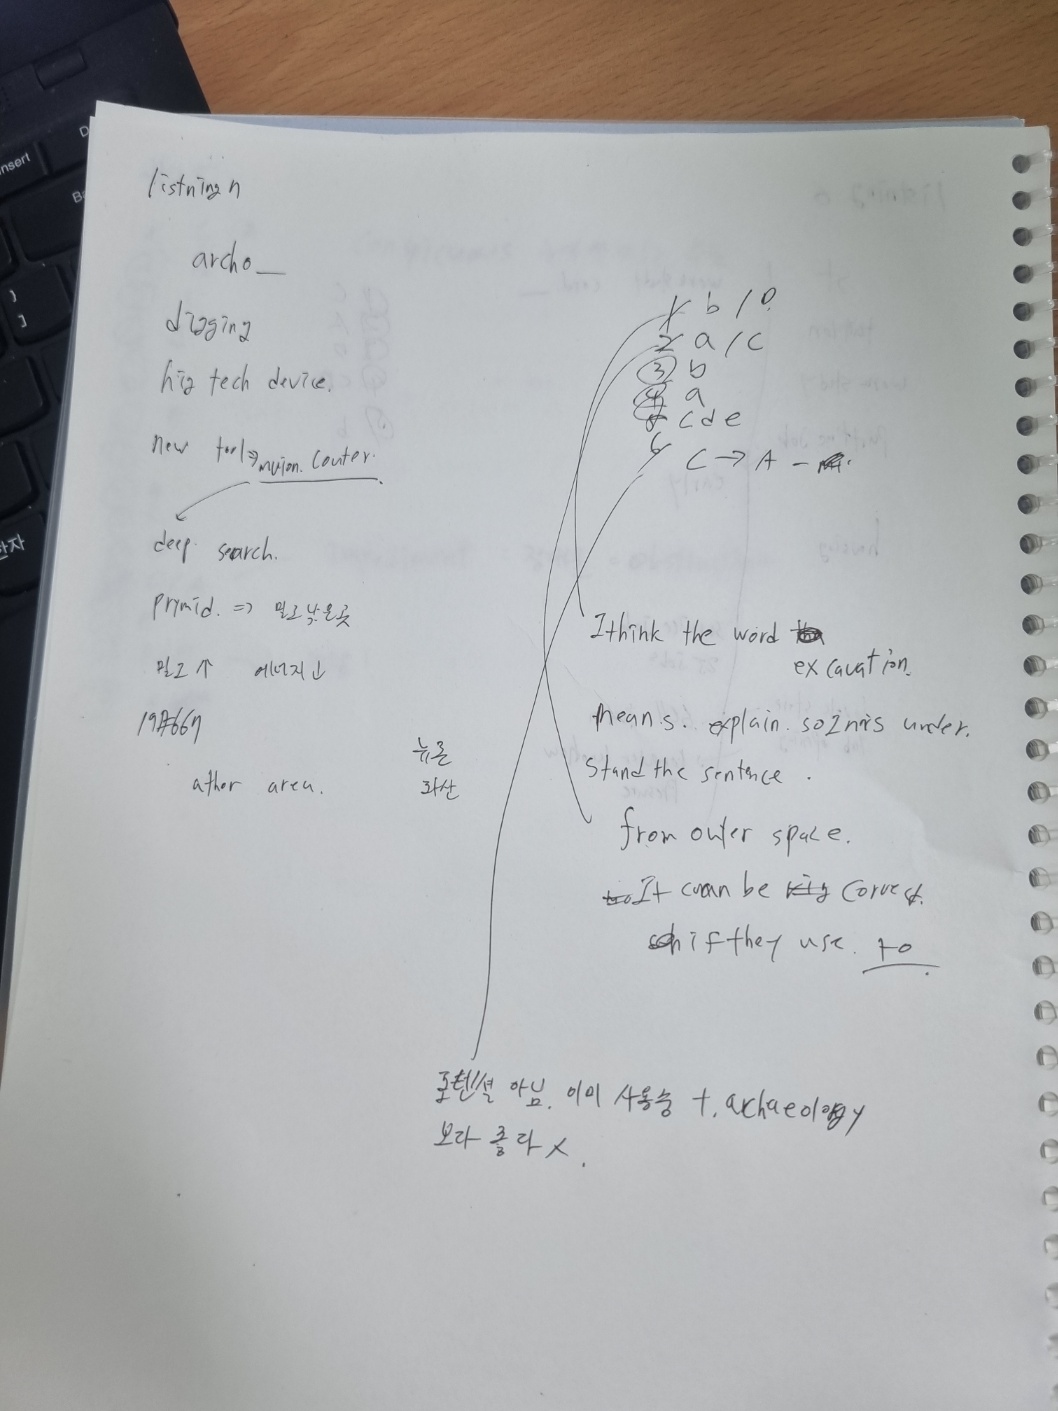 listning n
archo_
digging
hig tech device.
new tool⇒ muion. Couter.
deep search.
prymid. => 밀도 낮은 곳
밀도↑ 에너지↓
19667
athor area.
뉴튼
화산
1 b /
2 a / c
3 b
4 a
5 c d e
6 c → A -
I think the word
excavation.
means. explain. so I mis under.
Stand the sentence.
from outer space.
It cuan be correct.
if they use. to
포텐셜 아님. 이미 사용중 +. archaeology
보다 좋다 x.
insert
한자